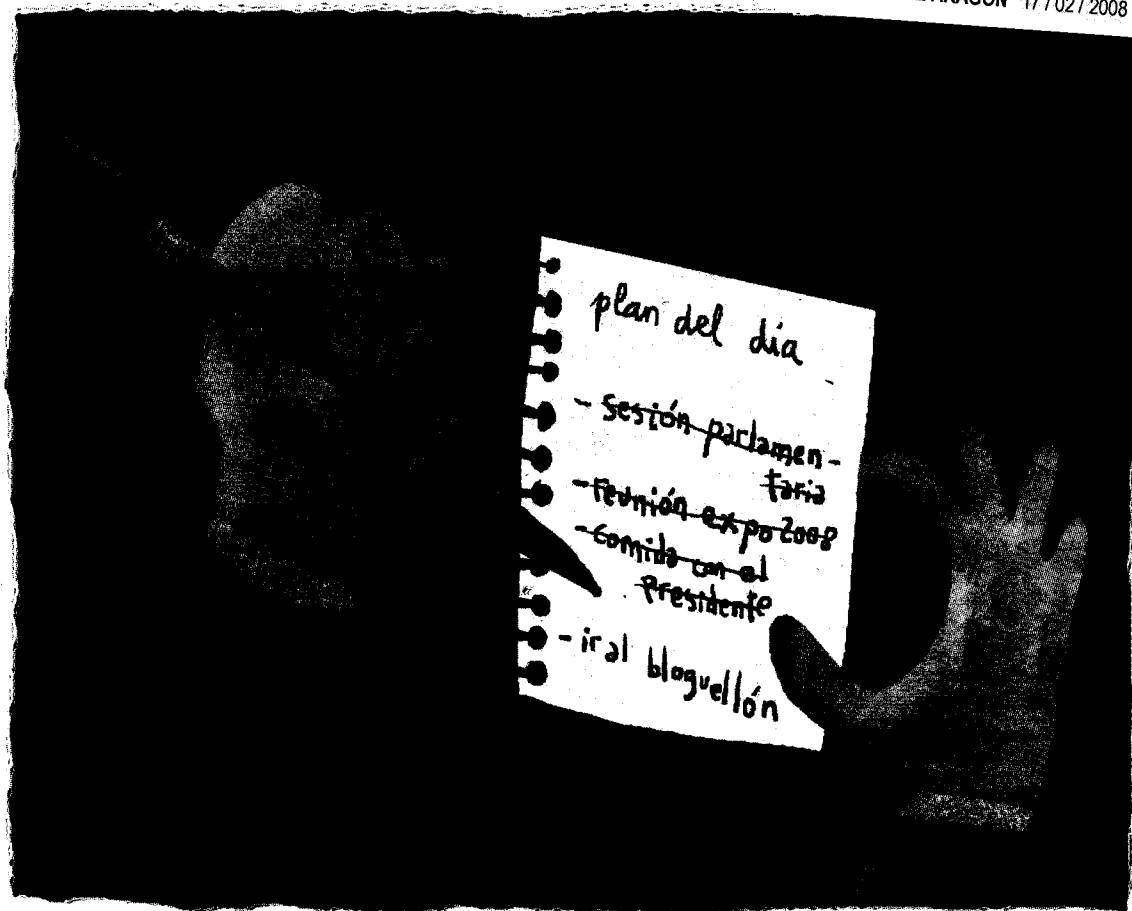 ARAGÓN 17 / 02 / 2008
plan del día
- sesión parlamen-
taria
- reunión expo 2008
- comida con el
presidente
- ir al bloguellón